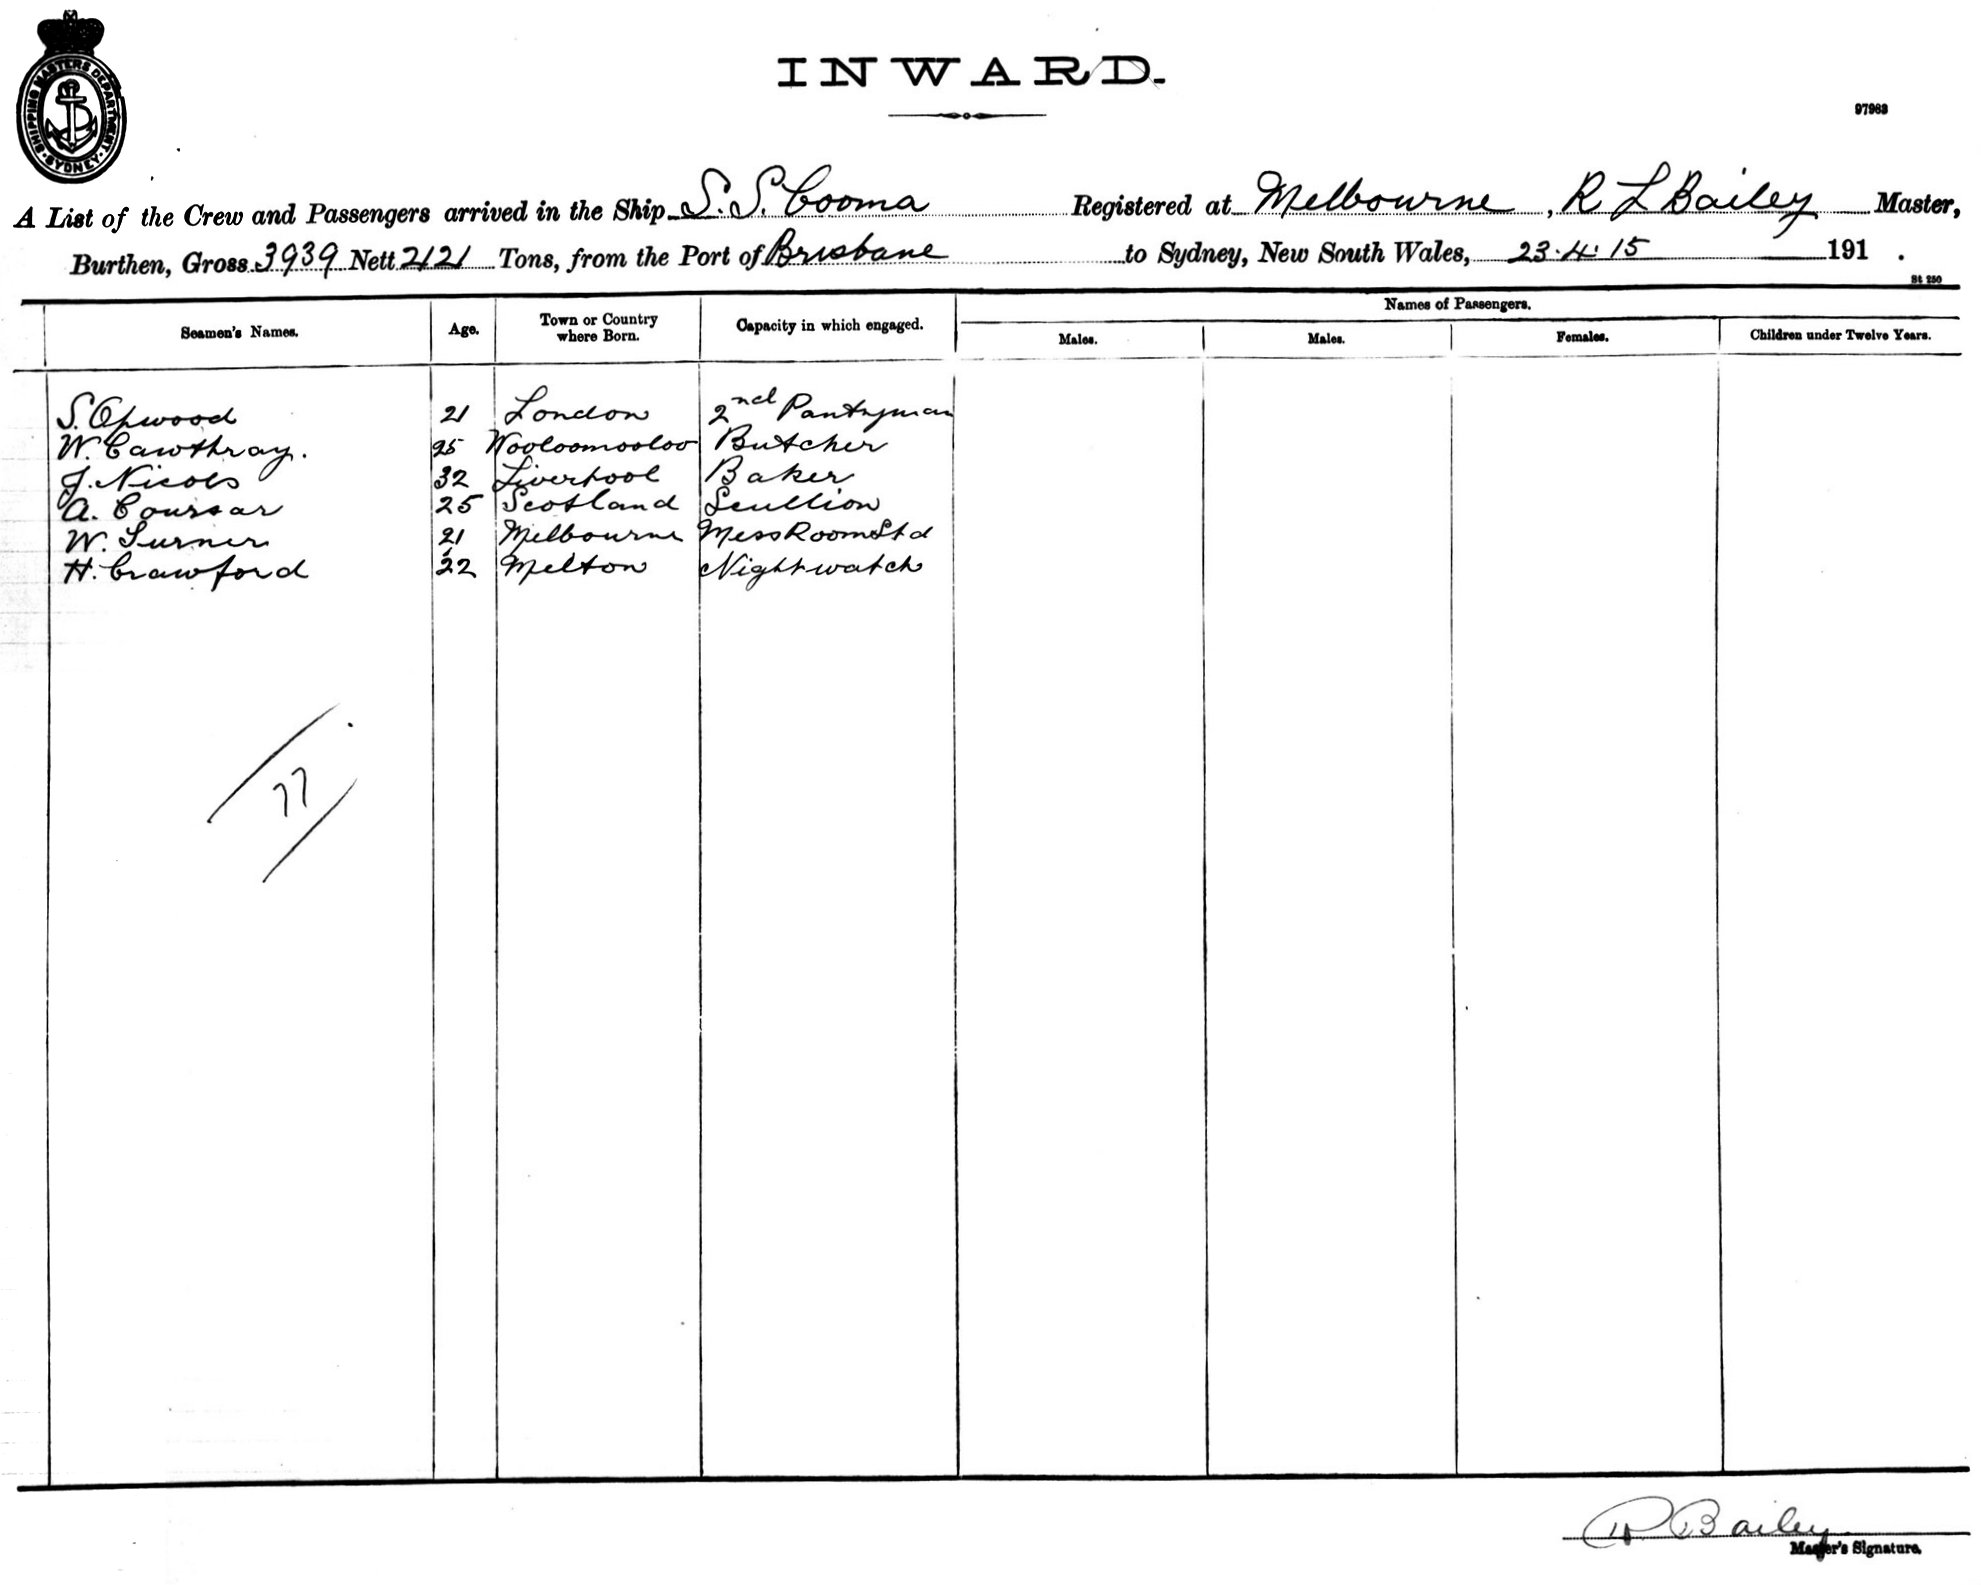 SHIPPING MASTERS DEPARTMENT · SYDNEY ·
INWARD.
97963
A List of the Crew and Passengers arrived in the Ship S.S. Cooma Registered at Melbourne, R L Bailey Master,
Burthen, Gross 3939 Nett 2121 Tons, from the Port of Brisbane to Sydney, New South Wales, 23.4.15 191 .
St 250
Seamen's Names. Age. Town or Country where Born. Capacity in which engaged. Names of Passengers.
Males. Males. Females. Children under Twelve Years.
S. Opwood 21 London 2nd Pantryman
W. Cawthray. 25 Wooloomooloo Butcher
J. Nicols 32 Liverpool Baker
A. Coursar 25 Scotland Scullion
W. Turner 21 Melbourne Mess Room Std
H. Crawford 22 Melton Nightwatch
77
R Bailey
Master's Signature.